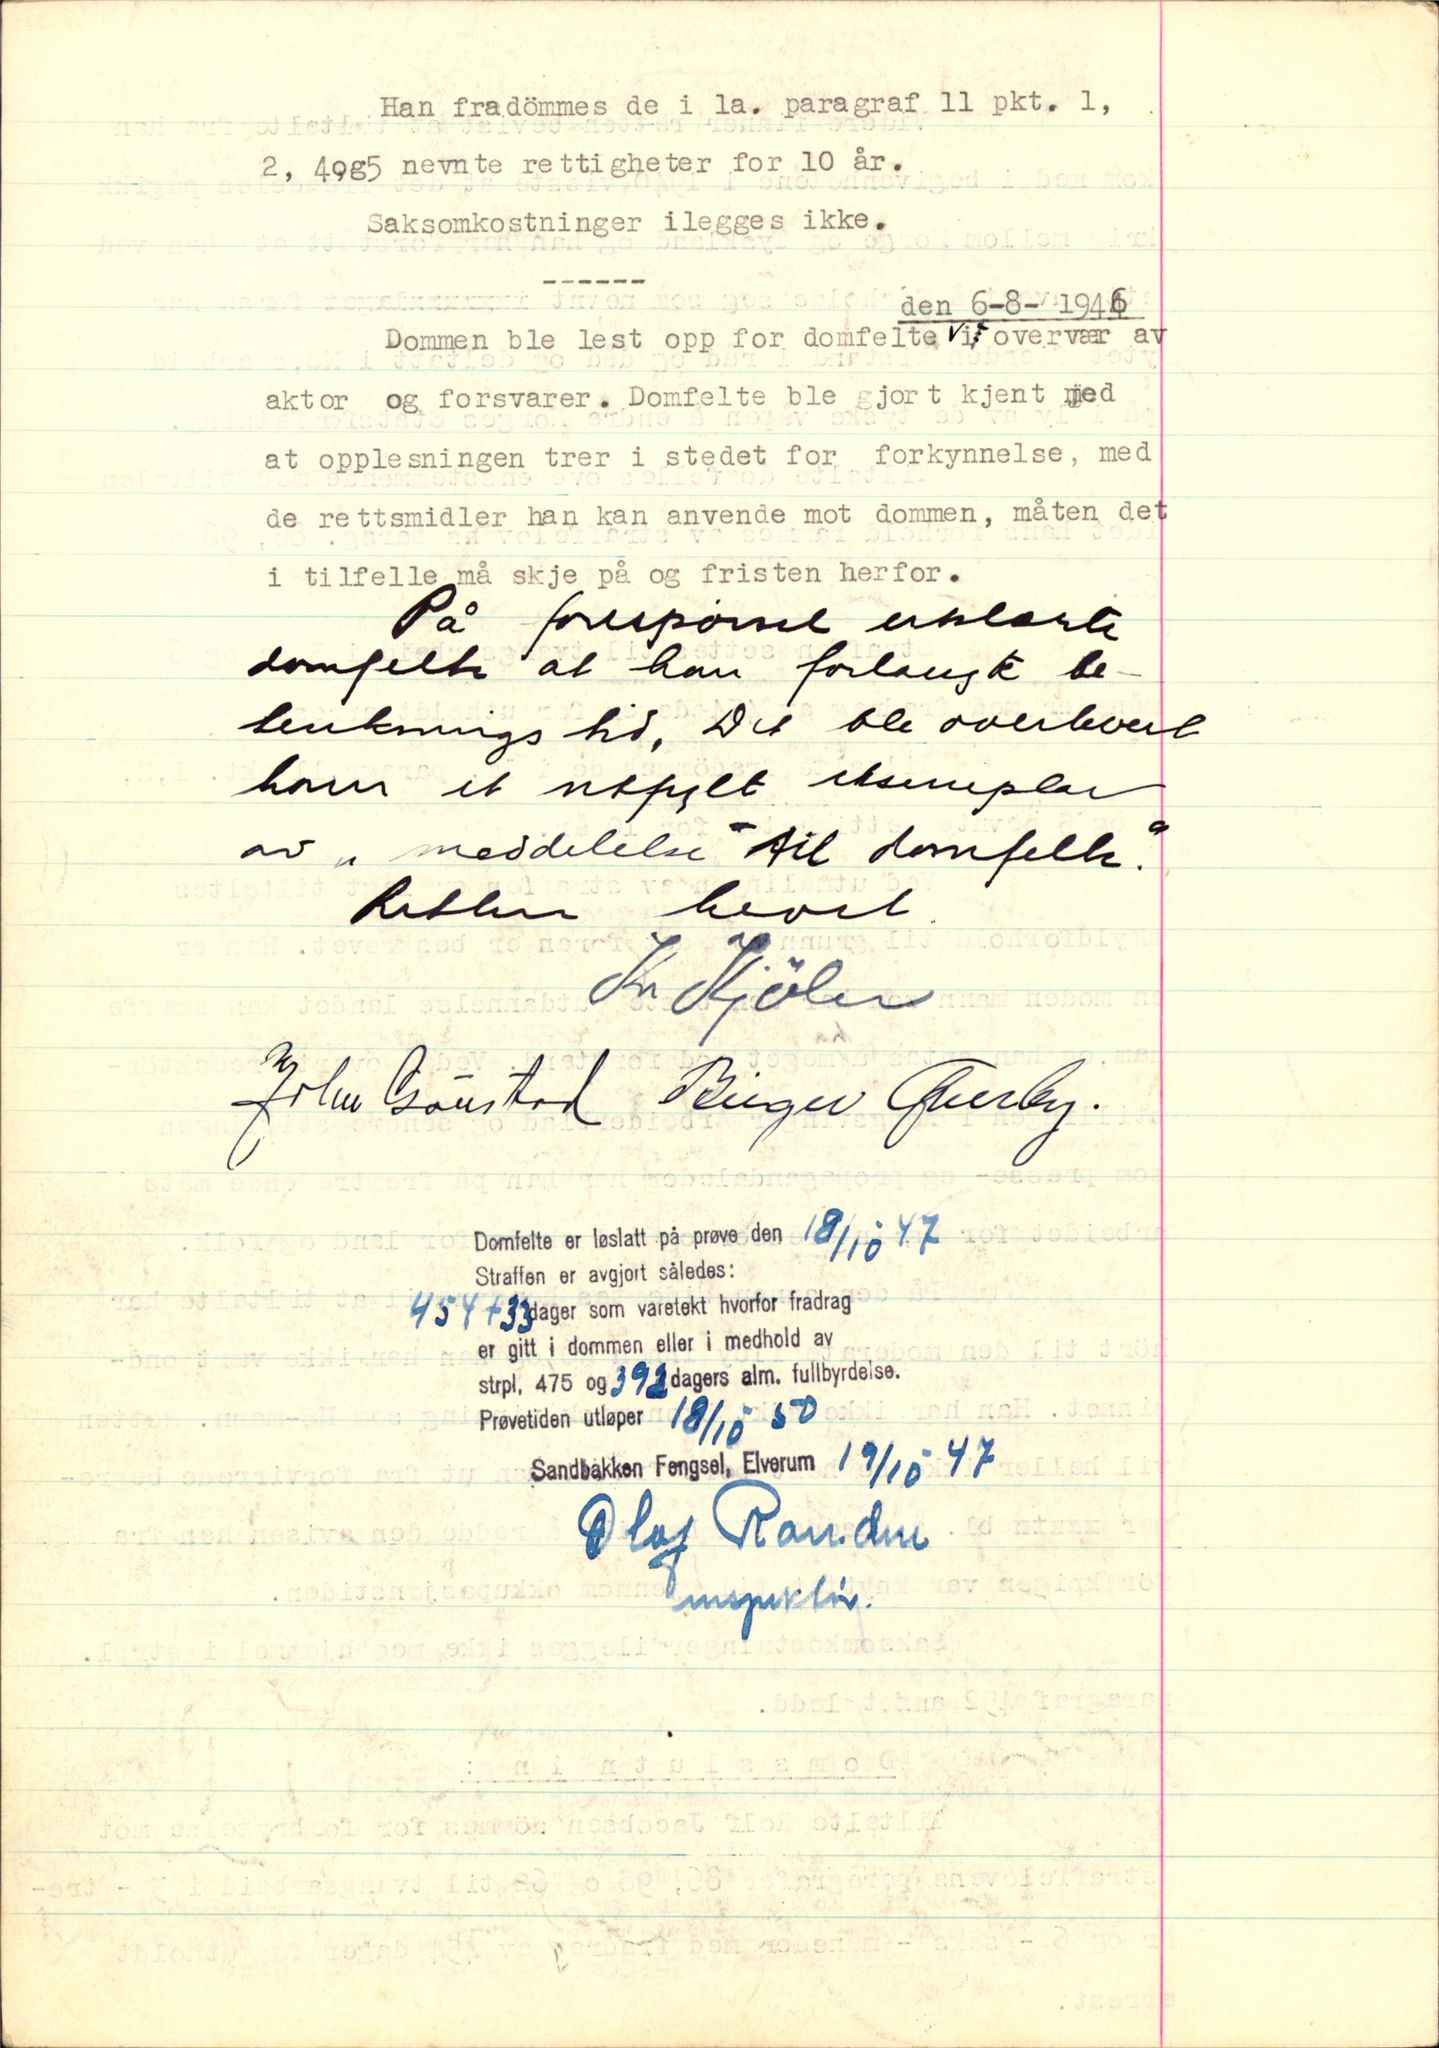 Han fradömmes de i la. paragraf 11 pkt. 1,
2, 4og5 nevnte rettigheter for 10 år.
Saksomkostninger ilegges ikke.
------
den 6-8-1946
Dommen ble lest opp for domfelte i overvær av
aktor og forsvarer. Domfelte ble gjort kjent med
at opplesningen trer i stedet for forkynnelse, med
de rettsmidler han kan anvende mot dommen, måten det
i tilfelle må skje på og fristen herfor.
På forespørsel erklærte
domfelte at han forlangte be-
tenknings tid, Det ble overlevert
ham et utfylt eksemplar
av „meddelelse til domfelte."
Retten hevet.
Kr Kjölen
John Grönstad Birger
Domfelte er løslatt på prøve den 18/10 47
Straffen er avgjort således:
454+33 dager som varetekt hvorfor fradrag
er gitt i dommen eller i medhold av
strpl. 475 og 392 dagers alm. fullbyrdelse.
Prøvetiden utløper 18/10 50
Sandbakken Fengsel, Elverum 19/10 47
Olaf Randen
inspektør.